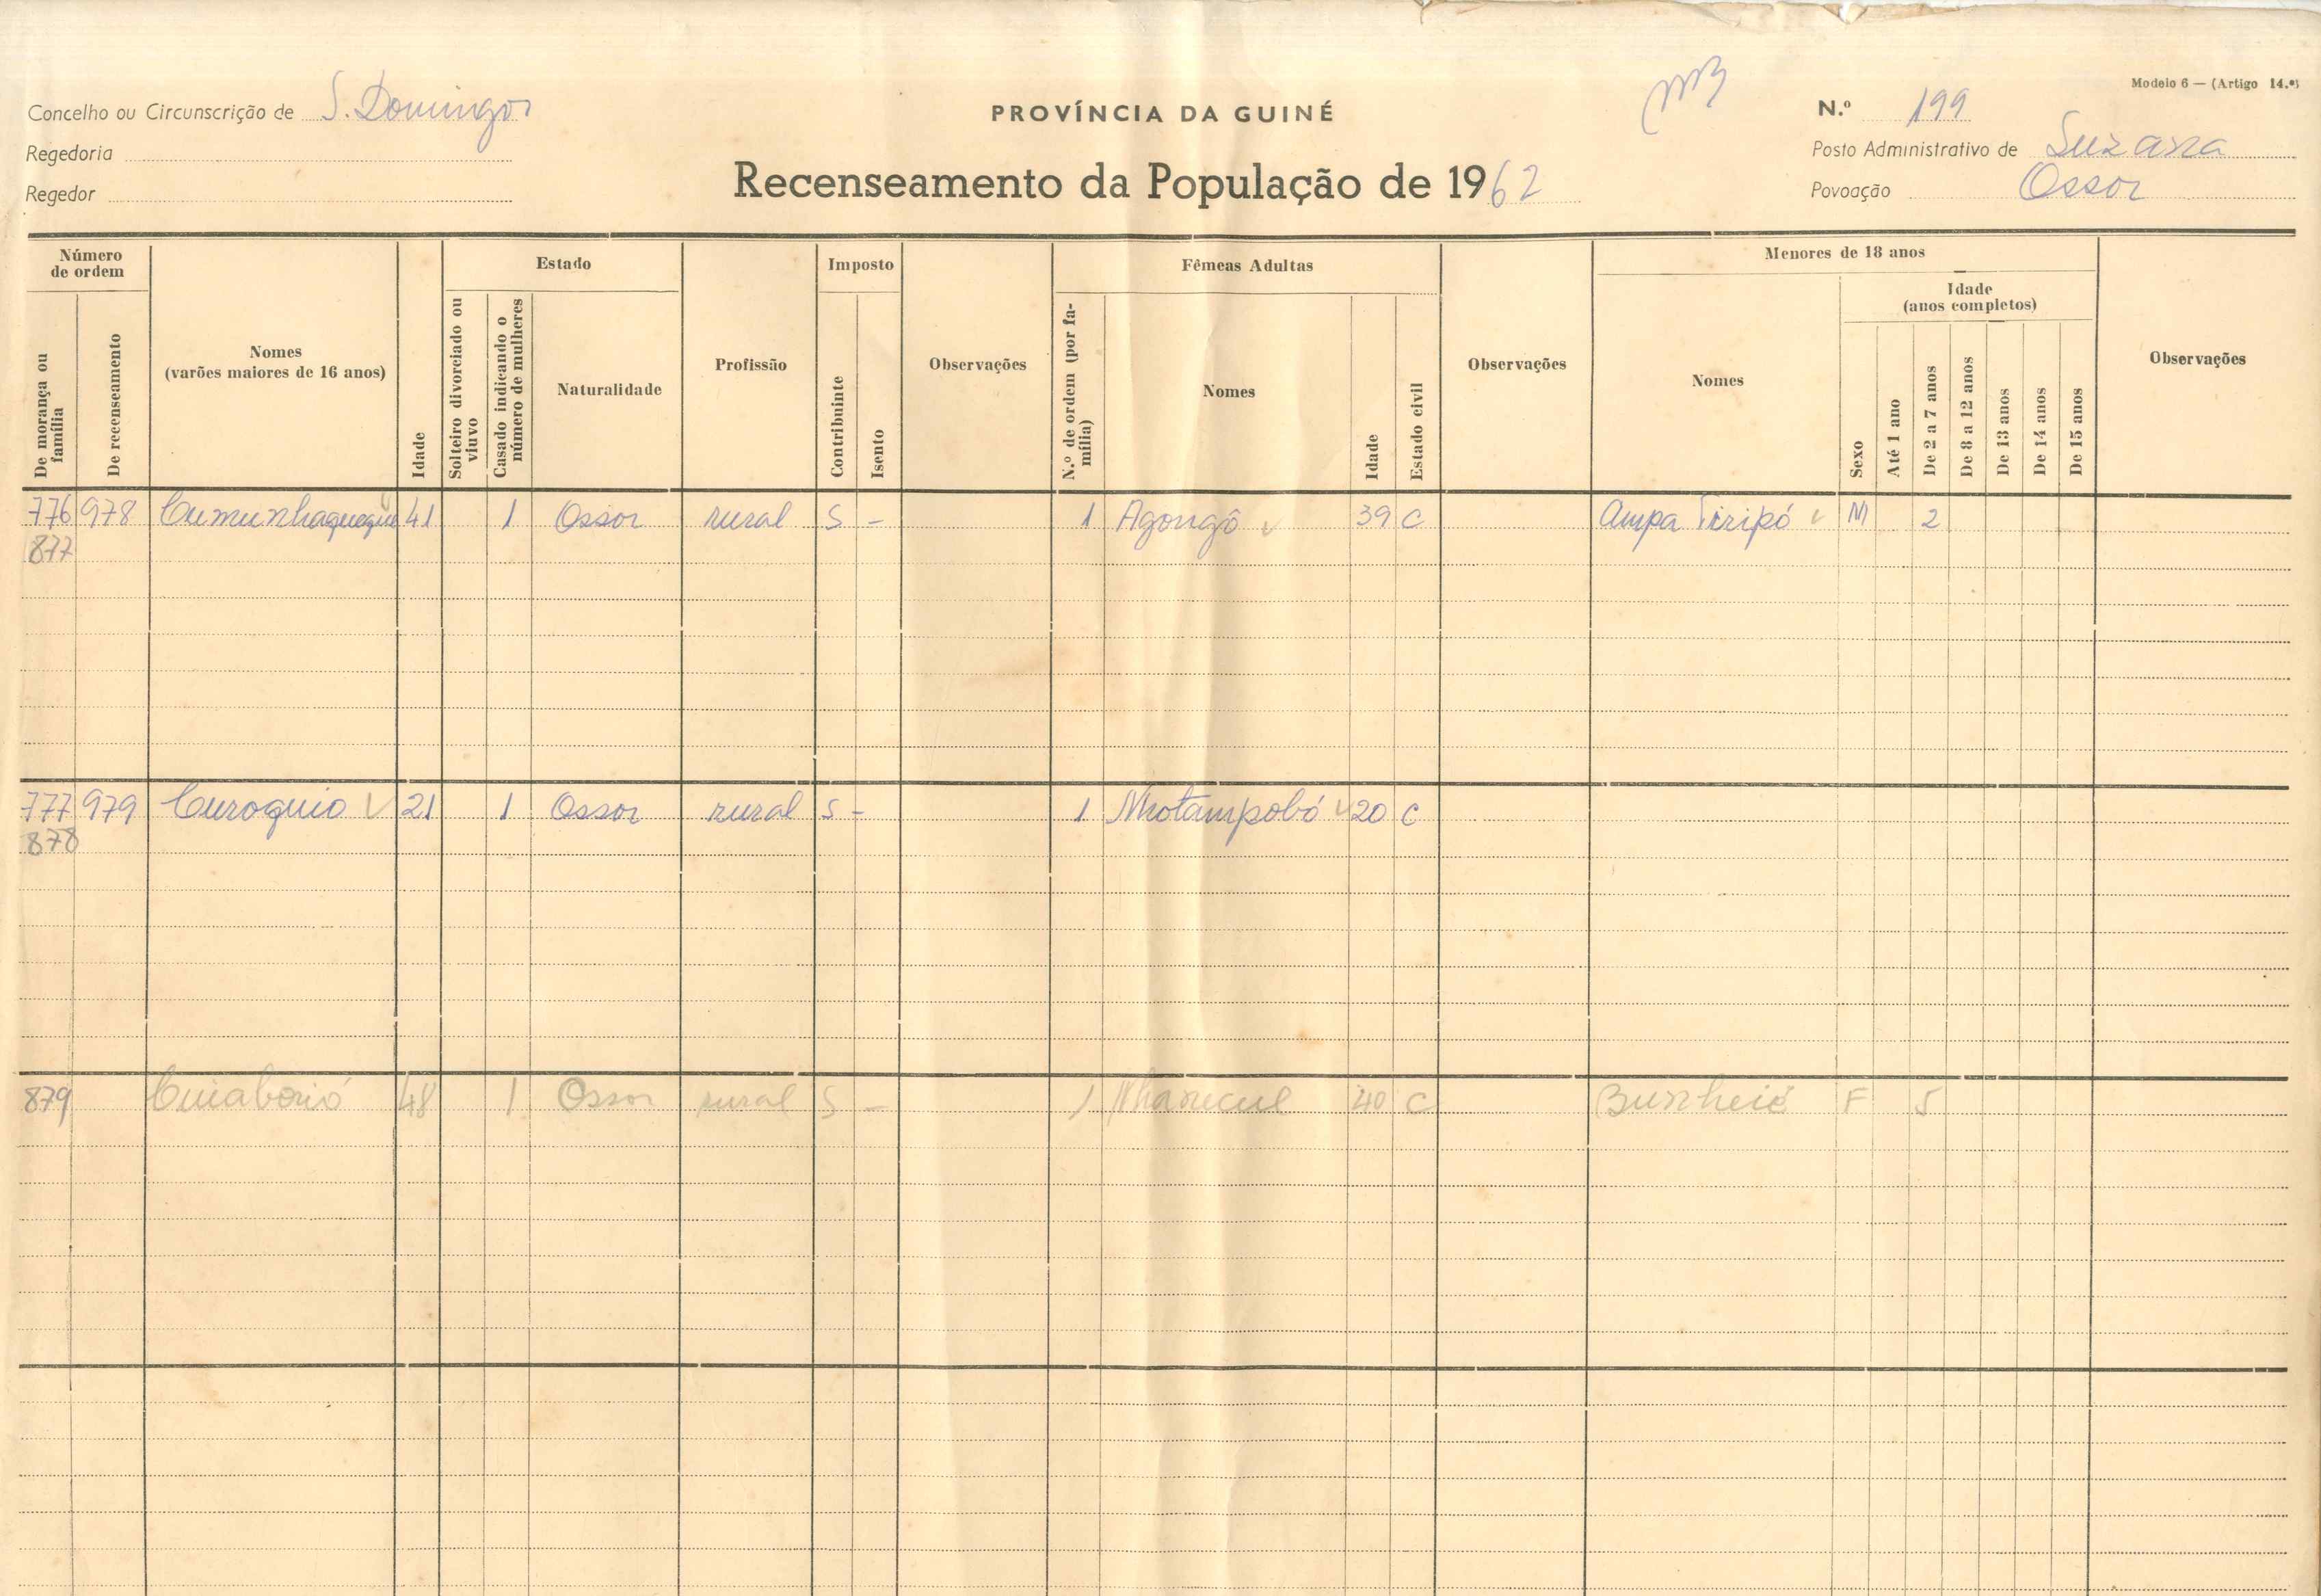 Modelo 6 — (Artigo 14.º)
Concelho ou Circunscrição de S. Domingos
PROVÍNCIA DA GUINÉ
N.º 199
Regedoria
Posto Administrativo de Suzana
Regedor
Recenseamento da População de 1962
Povoação Ossor
Número de ordem
De morança ou família
De recenseamento
Nomes
(varões maiores de 16 anos)
Idade
Estado
Solteiro divorciado ou viuvo
Casado indicando o número de mulheres
Naturalidade
Profissão
Imposto
Contribuinte
Isento
Observações
Fêmeas Adultas
N.º de ordem (por família)
Nomes
Idade
Estado civil
Observações
Menores de 18 anos
Nomes
Idade
(anos completos)
Sexo
Até 1 ano
De 2 a 7 anos
De 8 a 12 anos
De 13 anos
De 14 anos
De 15 anos
Observações
776 978 Cumunhaqueque 41 1 Ossor rural S - 1 Agongô 39 C Ampa Siripó M 2
877
777 979 Curoquio 21 1 Ossor rural S - 1 Nhotampobó 20 C
878
879 Cuiaborió 48 1 Ossor rural S - 1 Nhanucul 40 C Bunheié F 5